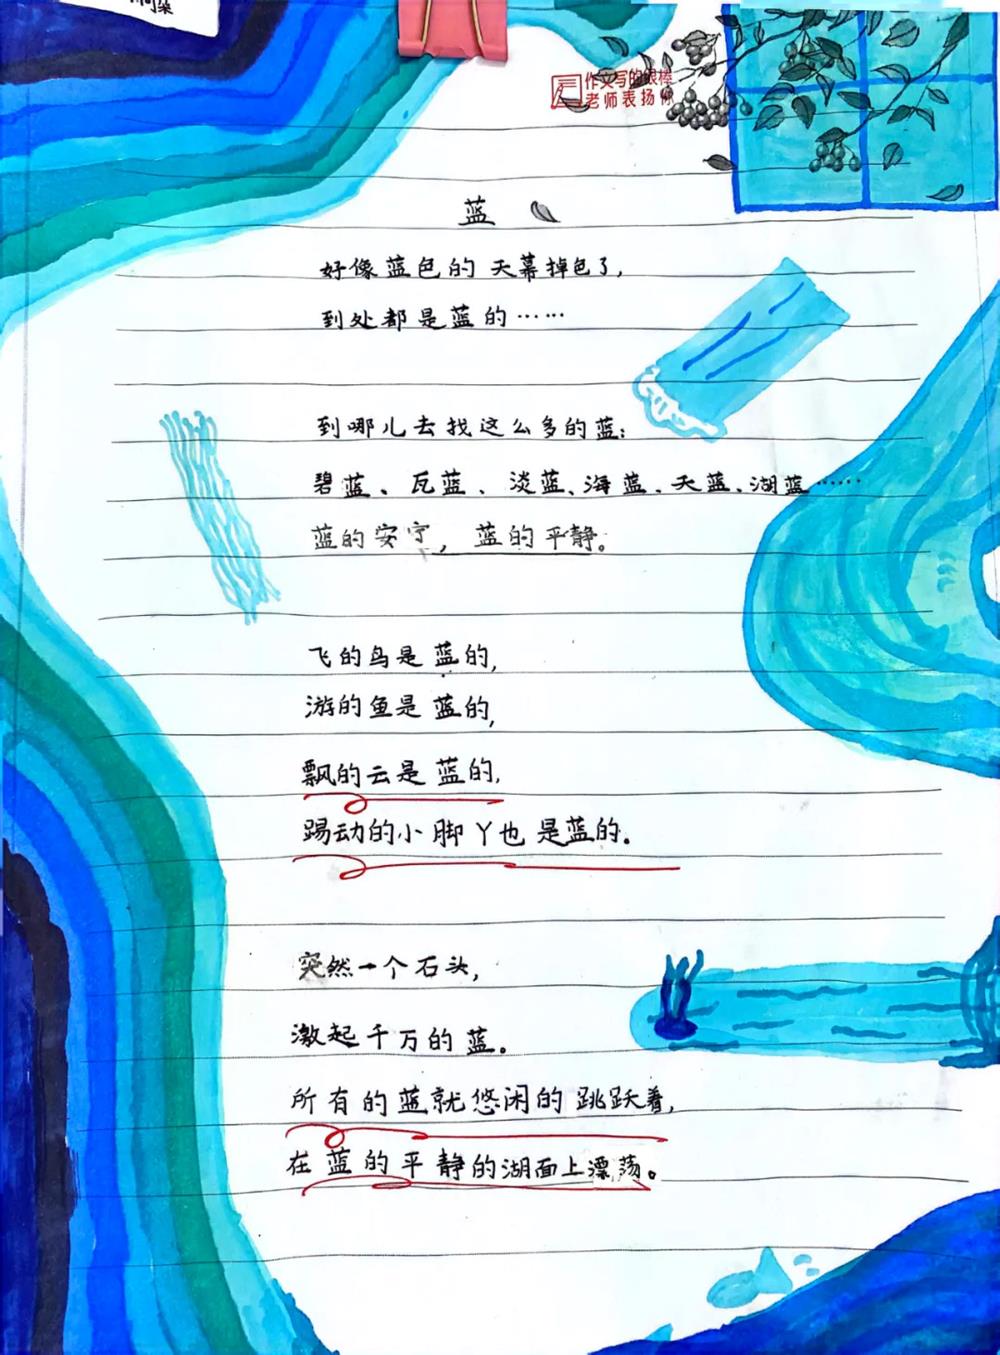 作文写的很棒
老师表扬你
蓝
好像蓝色的天幕掉包了,
到处都是蓝的……
到哪儿去找这么多的蓝:
碧蓝、瓦蓝、淡蓝、海蓝、天蓝、湖蓝……
蓝的安宁,蓝的平静。
飞的鸟是蓝的,
游的鱼是蓝的,
飘的云是蓝的,
踢动的小脚丫也是蓝的.
突然一个石头,
激起千万的蓝.
所有的蓝就悠闲的跳跃着,
在蓝的平静的湖面上漂荡。